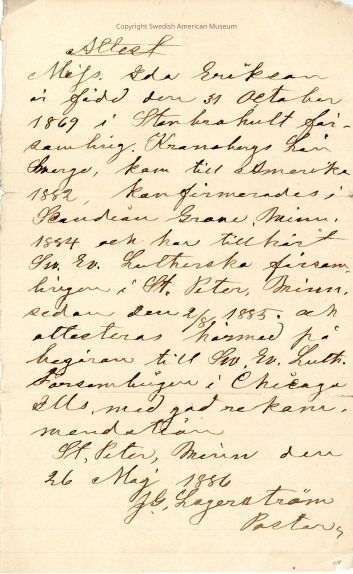 Copyright Swedish American Museum
Attest
Miss. Ida Erikson
är född den 31 October
1869 i Stenbrohult för-
samling. Kronobergs Län
Sverge, kom till Amerika
1882, konfirmerades i
Scandian Grove, Minn.
1884 och har tillhört
Sv. Ev. Lutherska försam-
lingen i St. Peter, Minn.
sedan den 2/8 1885. och
attesteras härmed på
begäran till Sv. Ev. Luth.
Församlingen i Chicago
Ills, med god rekom-
mendation
St, Peter, Minn den
26 Maj 1886
JG. Lagerström
Pastor